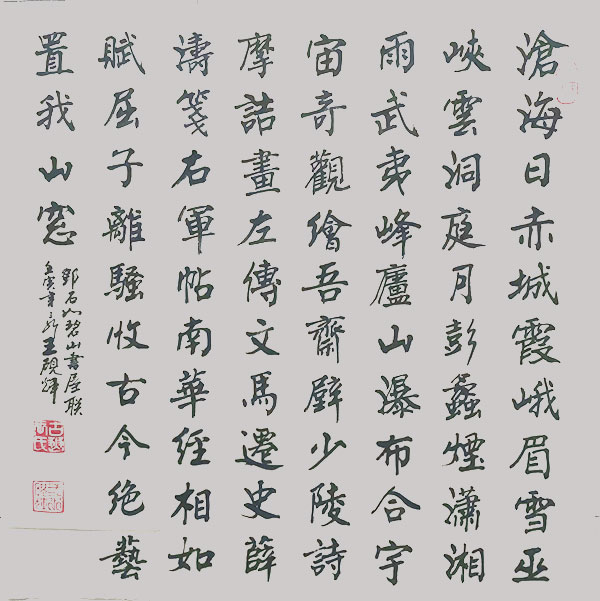 滄海日赤城霞峨眉雪巫
峽雲洞庭月彭蠡煙瀟湘
雨武夷峰廬山瀑布合宇
宙奇觀繪吾齋壁少陵詩
摩詰畫左傳文馬遷史薛
濤箋右軍帖南華經相如
賦屈子離騷收古今絶藝
置我山窓
鄧石如碧山書屋聯
壬寅書